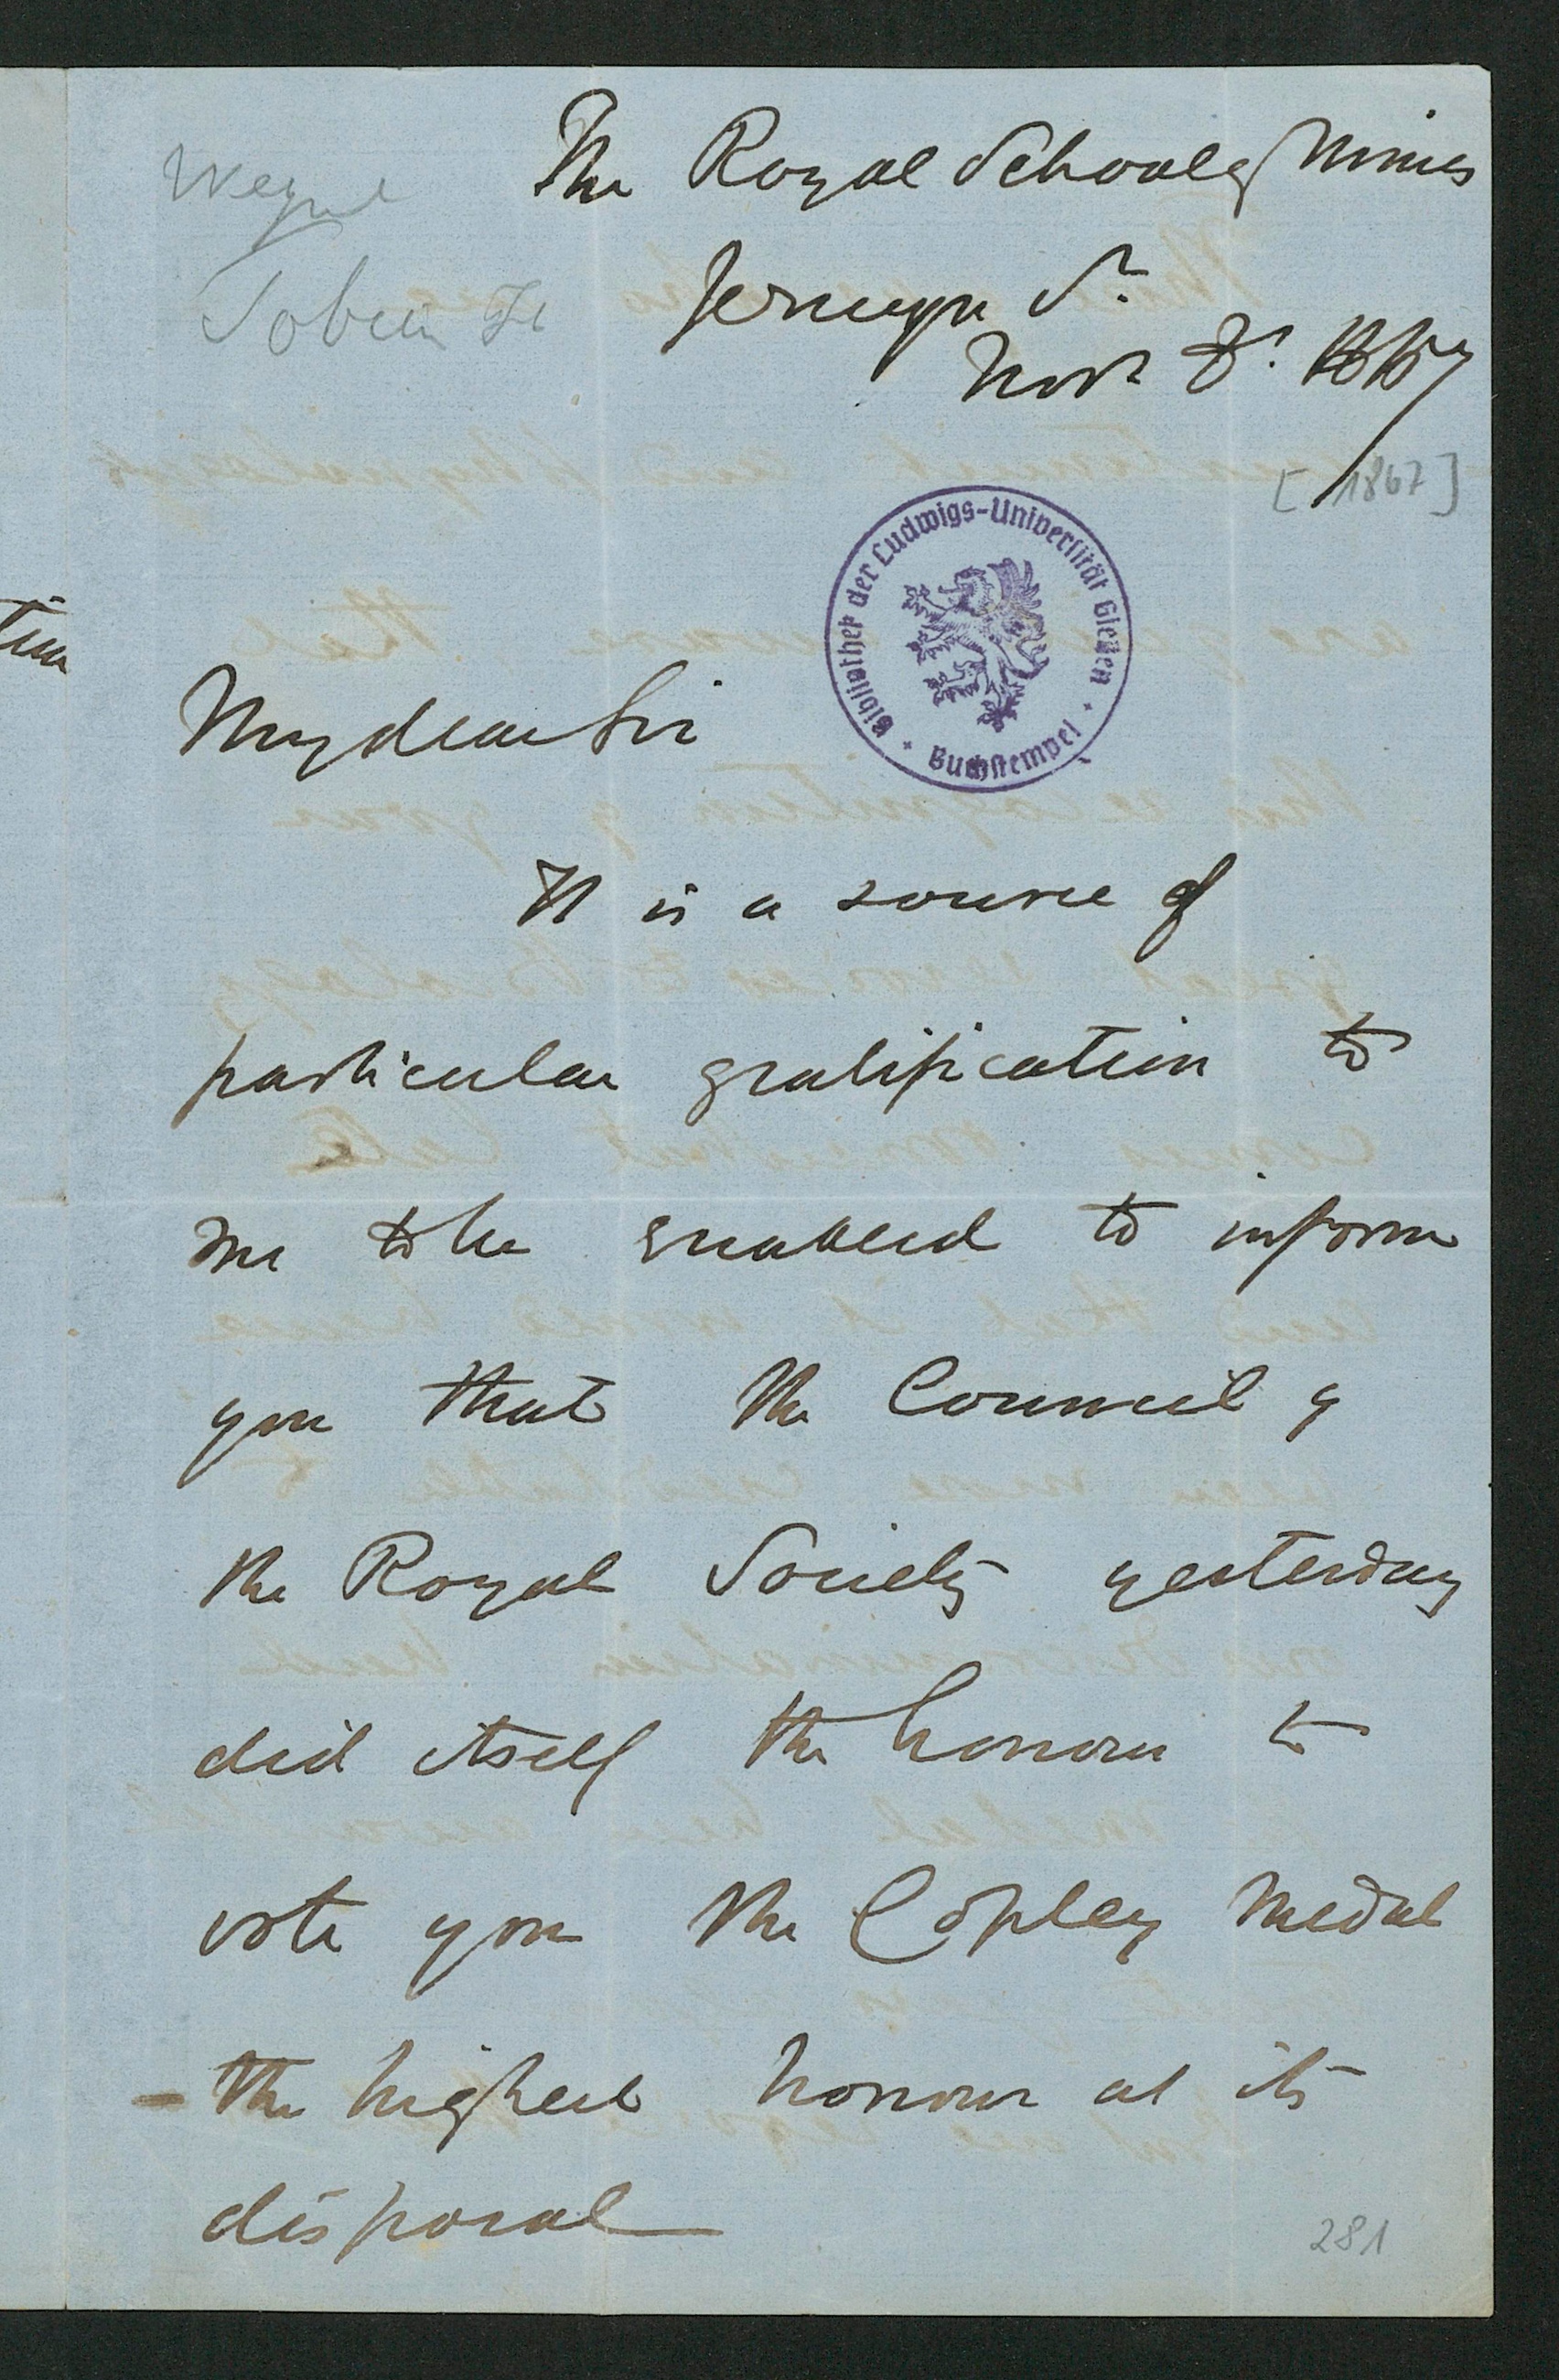 The Royal School of Mines
Jermyn St.
Novr 8th 1867
[1867]
Bibliothek der Ludwigs-Universität Gießen
Buchstempel
My dear Sir
It is a source of
particular gratification to
me to be enabled to inform
you that the Council of
the Royal Society yesterday
did itself the honour to
vote you the Copley Medal
- the highest honour at its
disposal
281